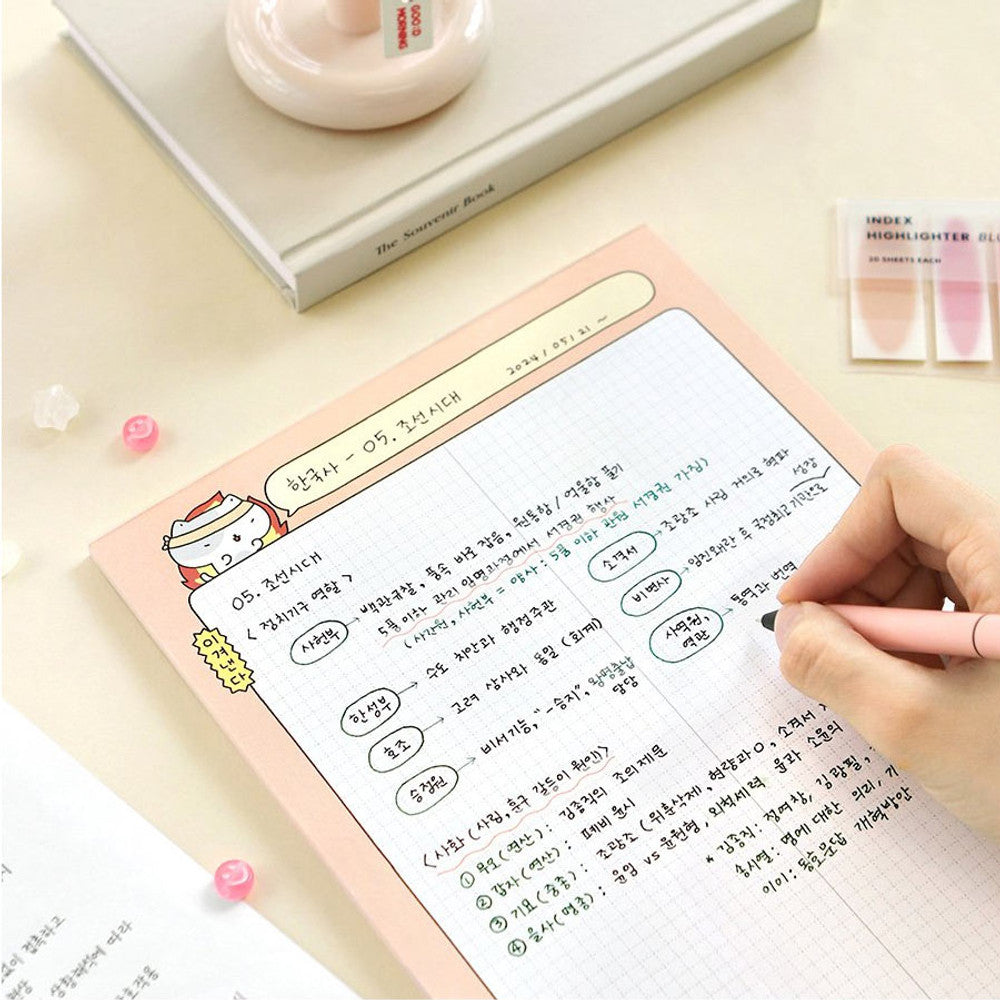 GOO:D
MORNING
The Souvenir Book
INDEX
HIGHLIGHTER BLU
20 SHEETS EACH
한국사 - 05. 조선시대
2024 / 05 / 21 ~
05. 조선시대
< 정치기구 역할 >
사헌부 → 백관규찰, 풍속 바로 잡음, 원통함 / 억울함 풀기
5품 이하 관리 임명과정에서 서경권 행사
(사간원, 사헌부 = 양사 : 5품 이하 관원 서경권 가짐)
한성부 → 수도 치안과 행정주관
호조 → 고려 삼사와 동일 (회계)
승정원 → 비서기능, "-승지", 왕명출납
담당
소격서 → 조광조 사림 거의로 혁파
비변사 → 임진왜란 후 국정최고기관으로
성장
사역원, 역관 → 통역과 번역
이겨낸다
<사화 (사림, 훈구 갈등이 원인)>
① 무오 (연산) : 김종직의 조의제문
② 갑자 (연산) : 폐비 윤씨
③ 기묘 (중종) : 조광조 (위훈삭제, 현량과 O, 소격서
④ 을사 (명종) : 윤임 vs 윤원형, 외척세력 윤과 소윤의
* 김종직 : 정여창, 김굉필,
송시열 : 명에 대한 의리, 기
이이 : 동호문답 개혁방안
접촉하고
상황해석에 따라